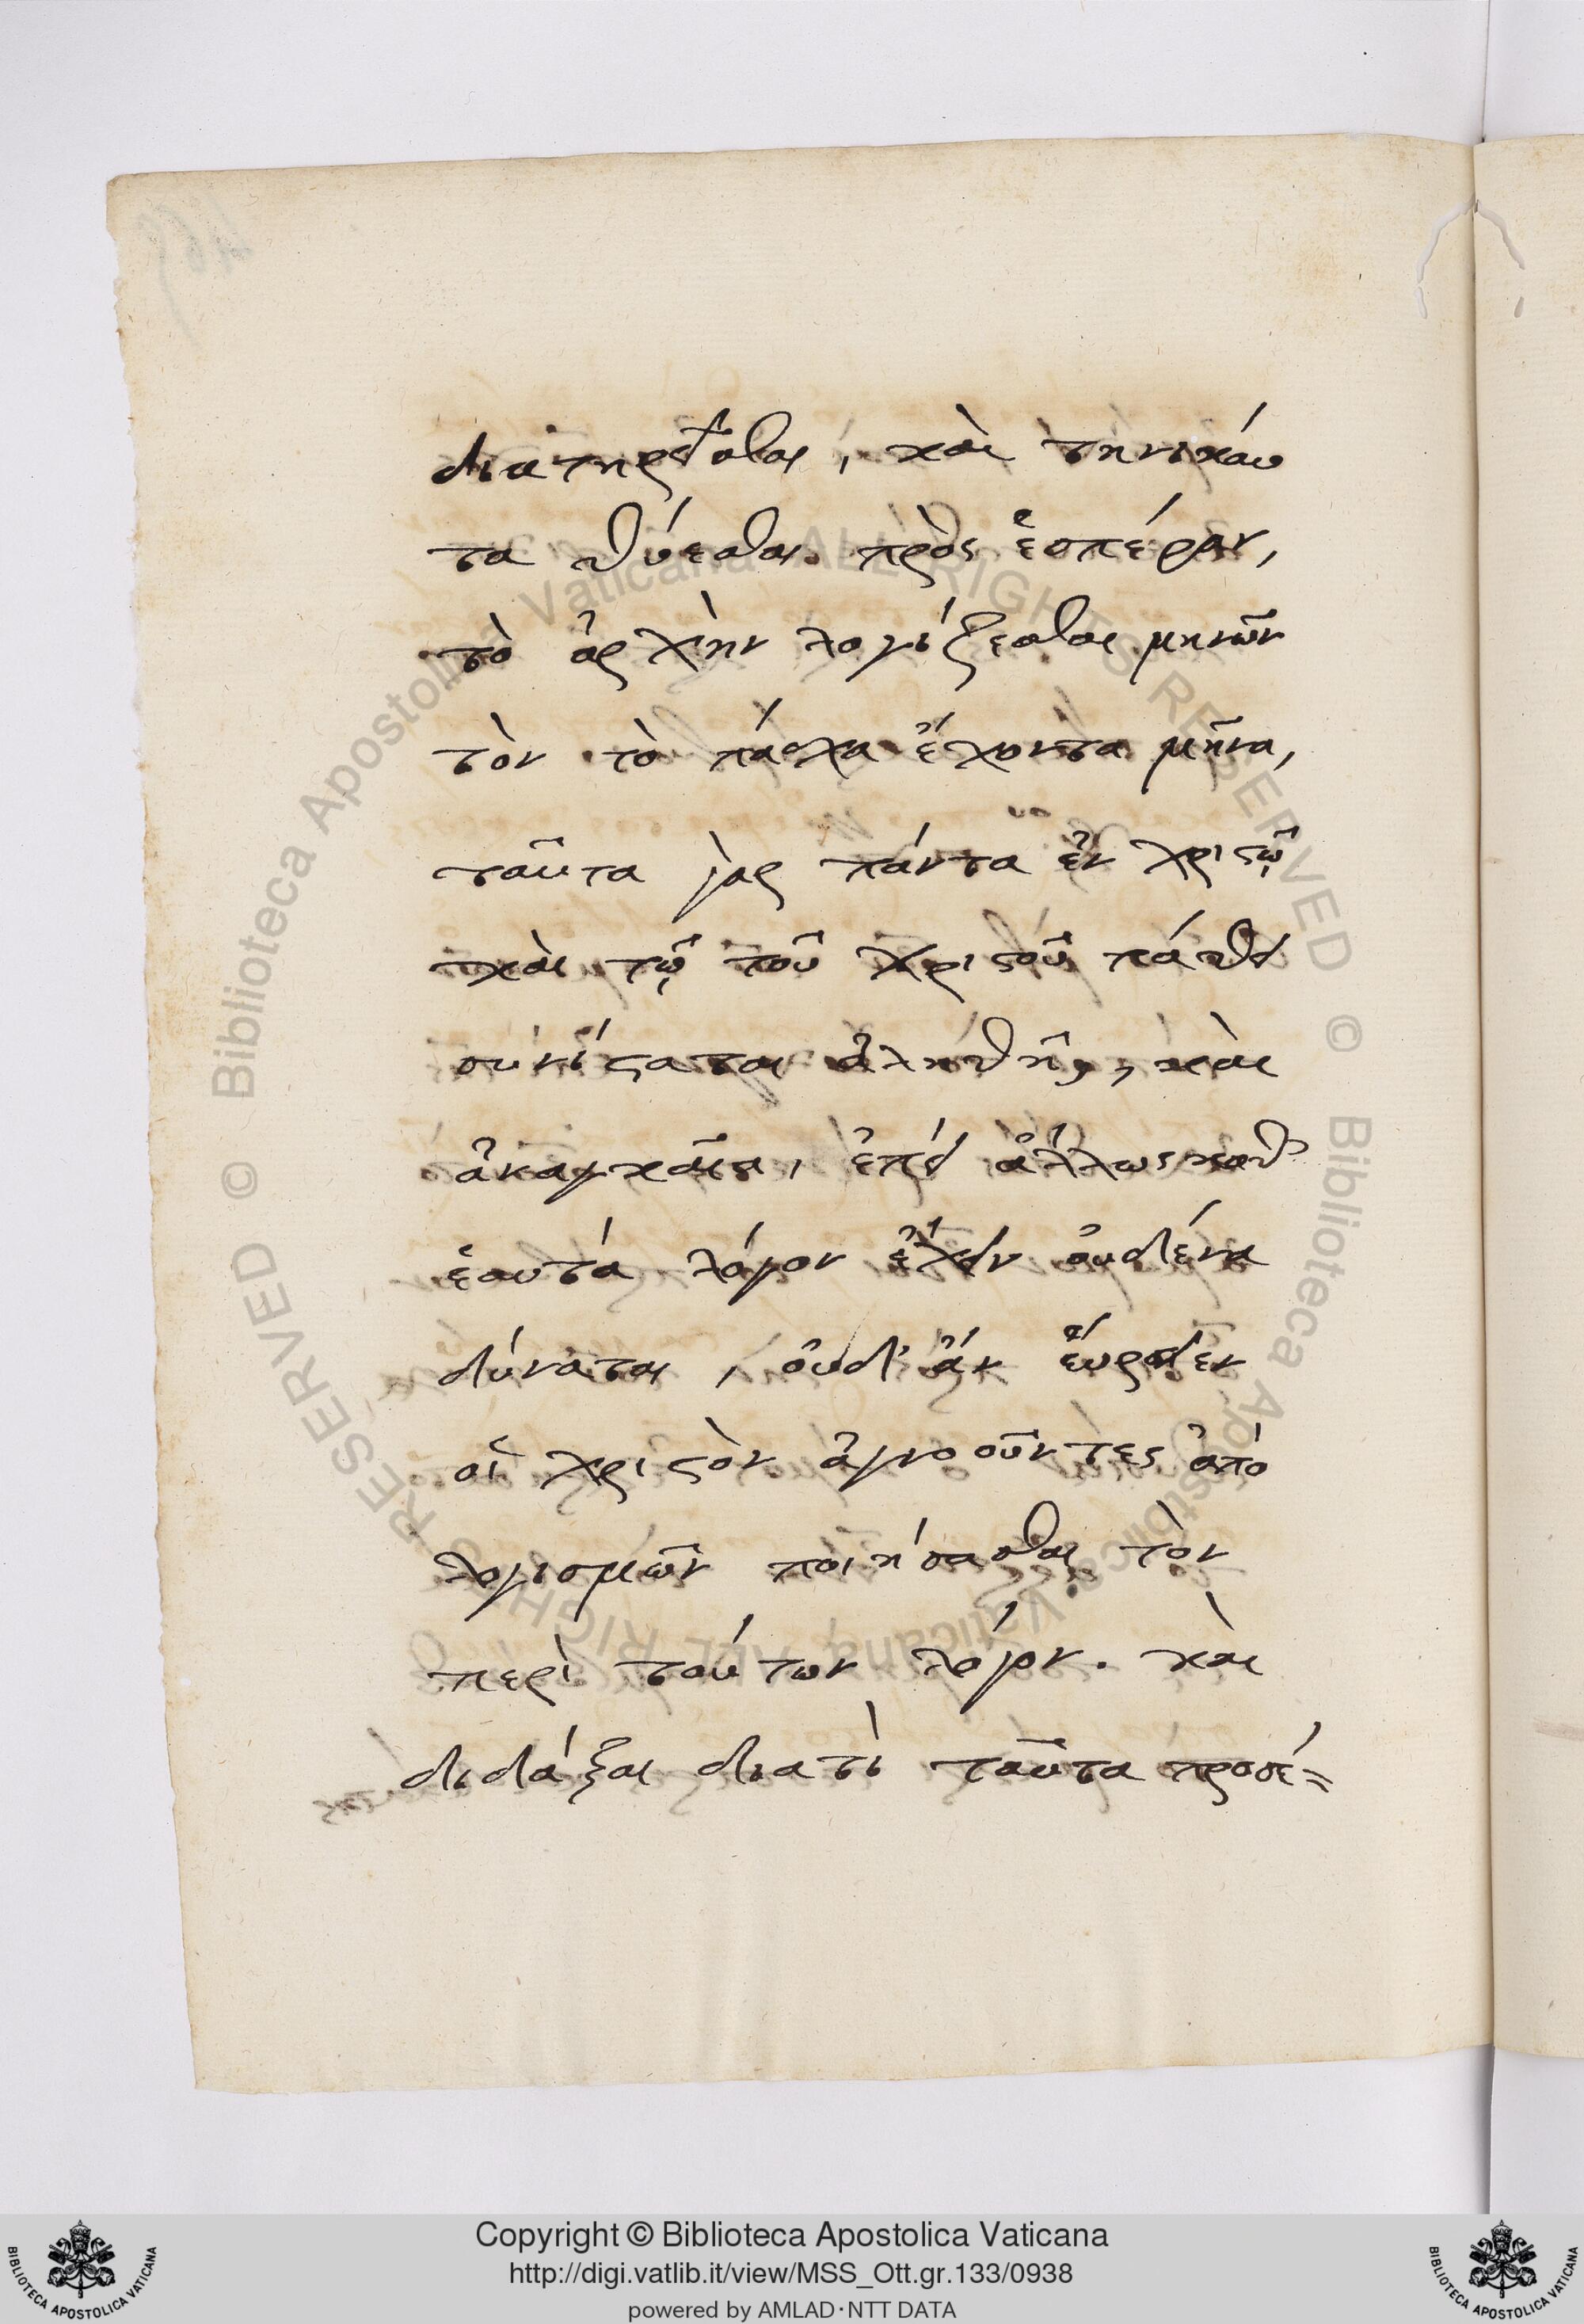 διατηρεῖσθαι, καὶ τηνικαῦ
τα θύεσθαι πρὸς ἑσπέραν,
τὸ ἀρχὴν λογίζεσθαι μηνῶν
τὸν τὸ πάσχα ἔχοντα μῆνα,
ταῦτα γὰρ πάντα ἐν χριστῷ
καὶ τῷ τοῦ χριστοῦ πάθει
συνίσταται ἀληθῆ, καὶ
ἀναγκαῖα, ἐπεὶ ἄλλως καθ'
ἑαυτὰ λόγον ἔχειν οὐδένα
δύναται, οὐδ' ἂν εὕροιεν
οἱ χριστὸν ἀγνοοῦντες ἀπὸ
λογισμῶν ποιήσασθαι τὸν
περὶ τούτων λόγον. καὶ
διδάξαι διατὶ ταῦτα προσέ=
Biblioteca Apostolica Vaticana ALL RIGHTS RESERVED ©
Biblioteca Apostolica Vaticana ALL RIGHTS RESERVED ©
Copyright © Biblioteca Apostolica Vaticana
http://digi.vatlib.it/view/MSS_Ott.gr.133/0938
powered by AMLAD·NTT DATA
BIBLIOTECA APOSTOLICA VATICANA
BIBLIOTECA APOSTOLICA VATICANA